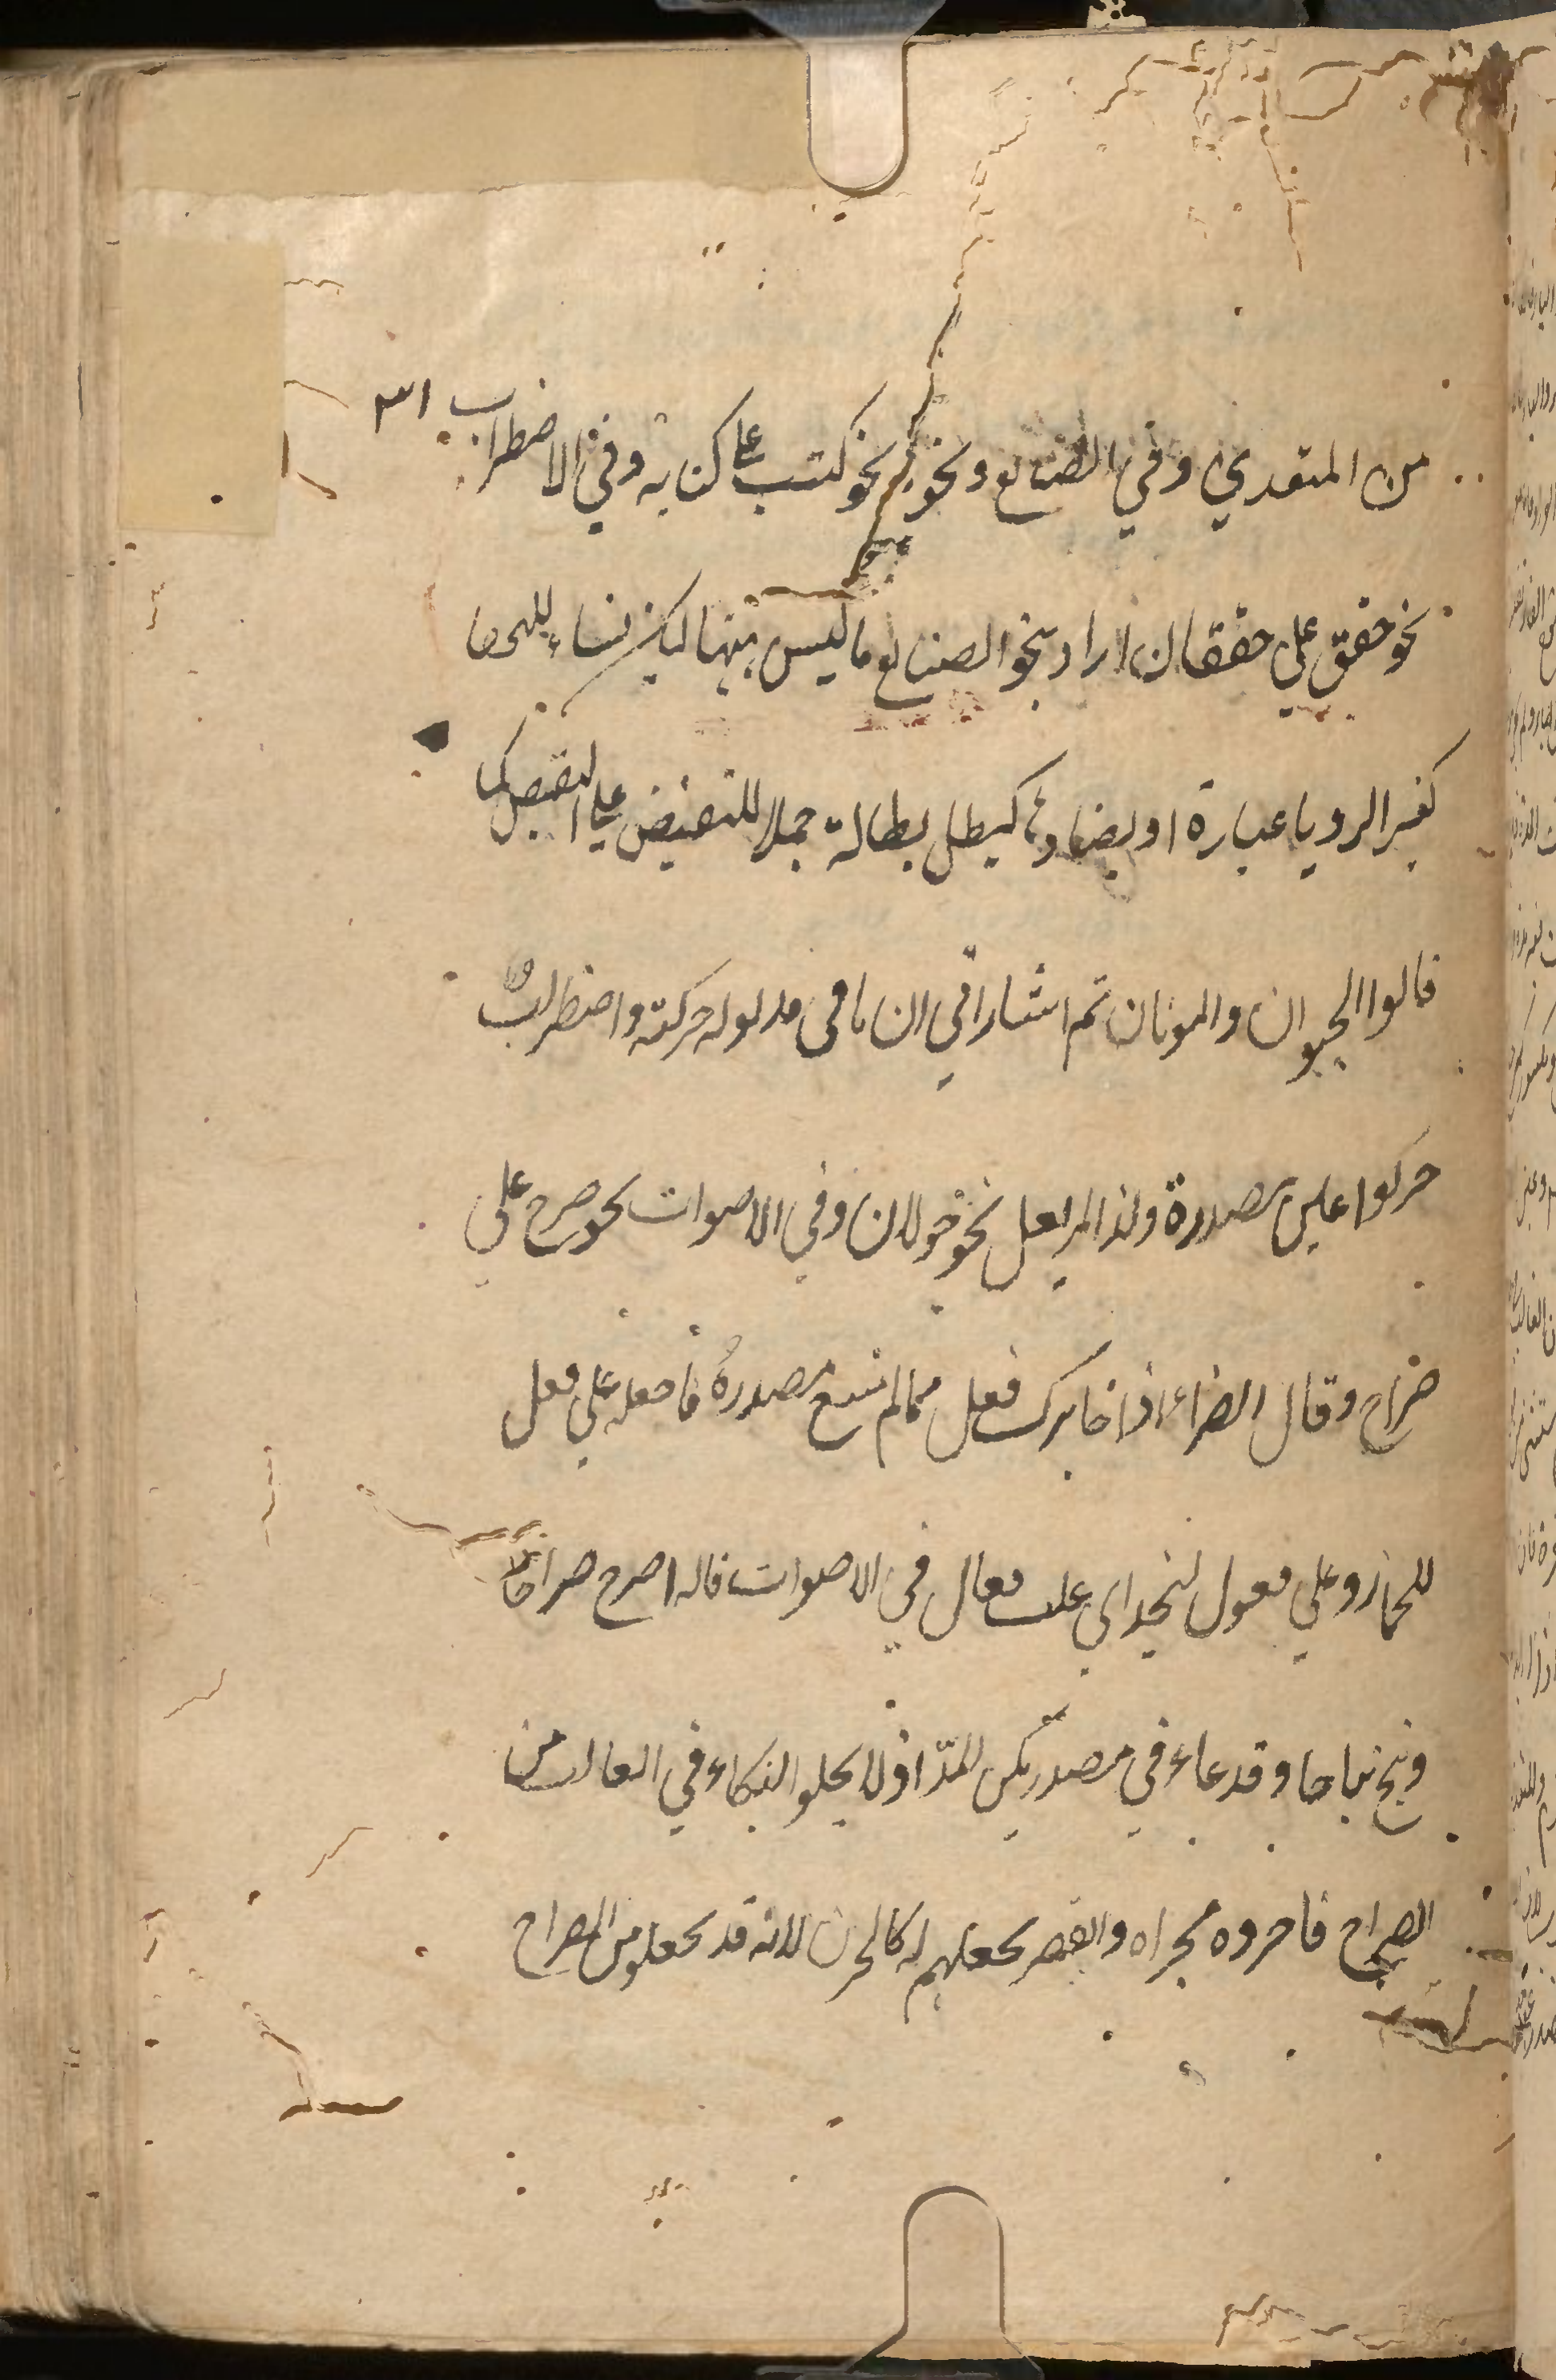 من المتعدي وفي الصنايع ونحوها نحو كتب على كتابة وفي الاضطراب
نحو خفق على خفقان اراد بنحو الصنايع ما ليس منها
كعبر الرويا عبارة او يضادها كبطل بطالة حملا للنقيض على النقيض كما
قالوا الحيوان والموتان ثم اشار الى ان ما في مدلوله حركة واضطراب
حركوا عين مصدره ولذا لم يعل نحو جولان وفي الاصوات نحو صرخ على
صراخ وقال الفراء اذا جاءك فعل مما لم تسمع مصدرهُ فاجعله على فعل
للحجاز وعلى فعول لنجد اي على فعال في الاصوات قاله اصرخ صراخا
ونبح نباحا وقد جاء في مصدر بكى المدّ اذ لا يخلو البكاء في الغالب من
الصراخ فاجروه مجراه والقصر بجعلهم له كالحزن لانه قد يخلو من الصراخ